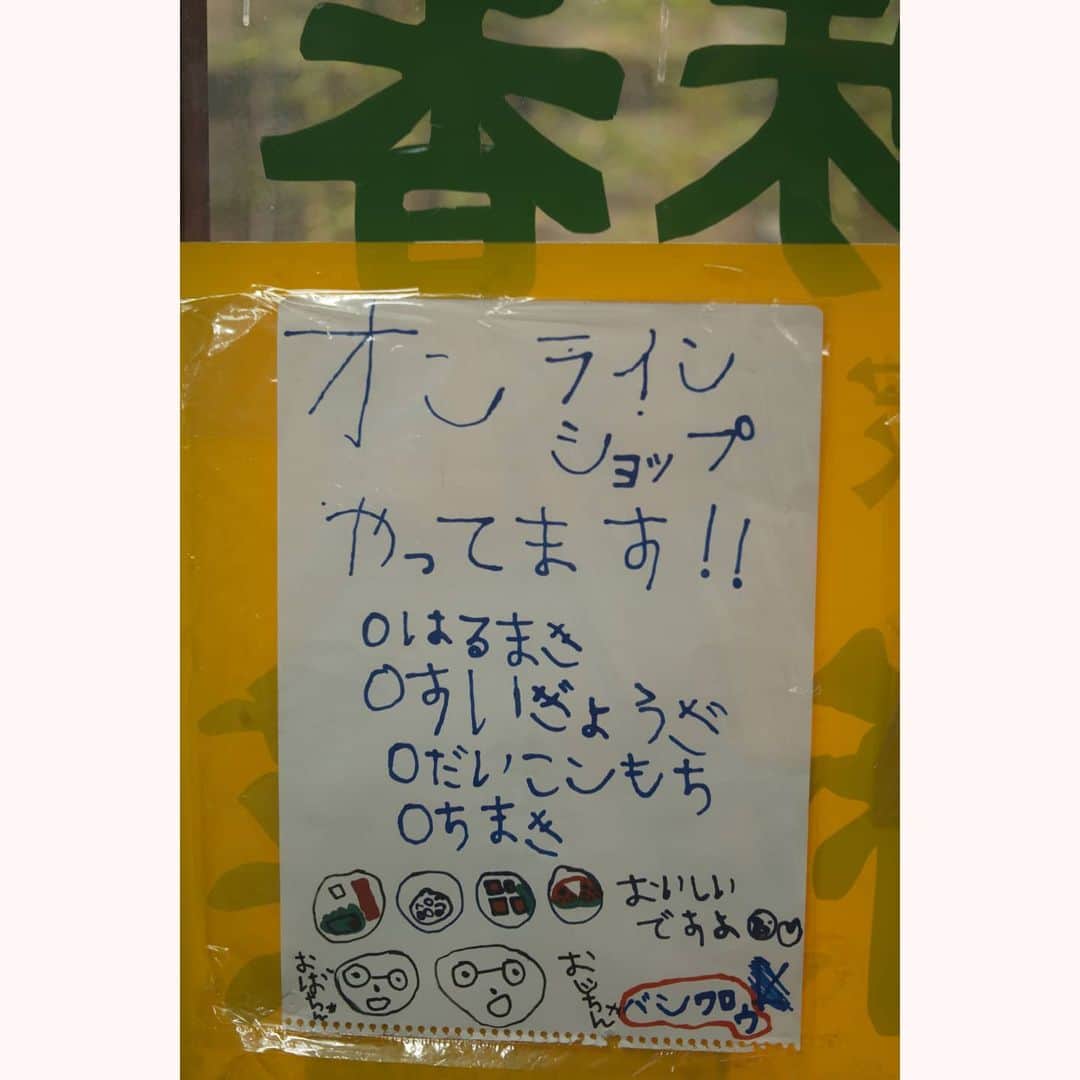 オンライン
ショップ
やってます!!
○はるまき
○すいぎょうざ
○だいこンもち
○ちまき
おいしい
ですよ
おばあちゃん
おじちゃん
バンワロウ